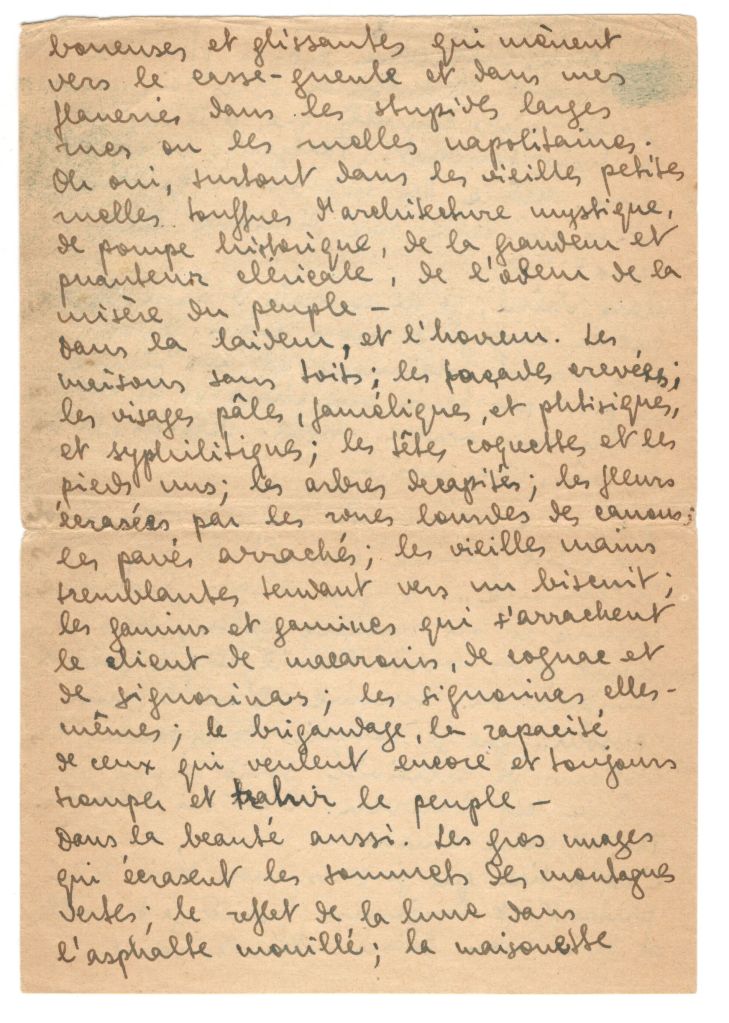 boueuses et glissantes qui mènent
vers le casse-gueule et dans mes
flaneries dans les stupides larges
rues ou les ruelles napolitaines.
Oh oui, surtout dans les vieilles petites
ruelles touffues d'architecture mystique,
de pompe historique, de la grandeur et
puanteur cléricale, de l'odeur de la
misère du peuple —
Dans la laideur, et l'horreur. Les
maisons sans toits; les façades crevées;
les visages pâles, faméliques, et phtisiques,
et syphilitiques; les têtes coquettes et les
pieds nus; les arbres decapités; les fleurs
écrasées par les roues lourdes des canons;
les pavés arrachés; les vieilles mains
tremblantes tendant vers un biscuit;
les gamins et gamines qui s'arrachent
le client de macaronis, de cognac et
de signorinas; les signorinas elles-
mêmes; le brigandage, la rapacité
de ceux qui veulent encore et toujours
tromper et trahir le peuple —
Dans la beauté aussi. Les gros nuages
qui écrasent les sommets des montagnes
vertes; le reflet de la lune dans
l'asphalte mouillé; la maisonette